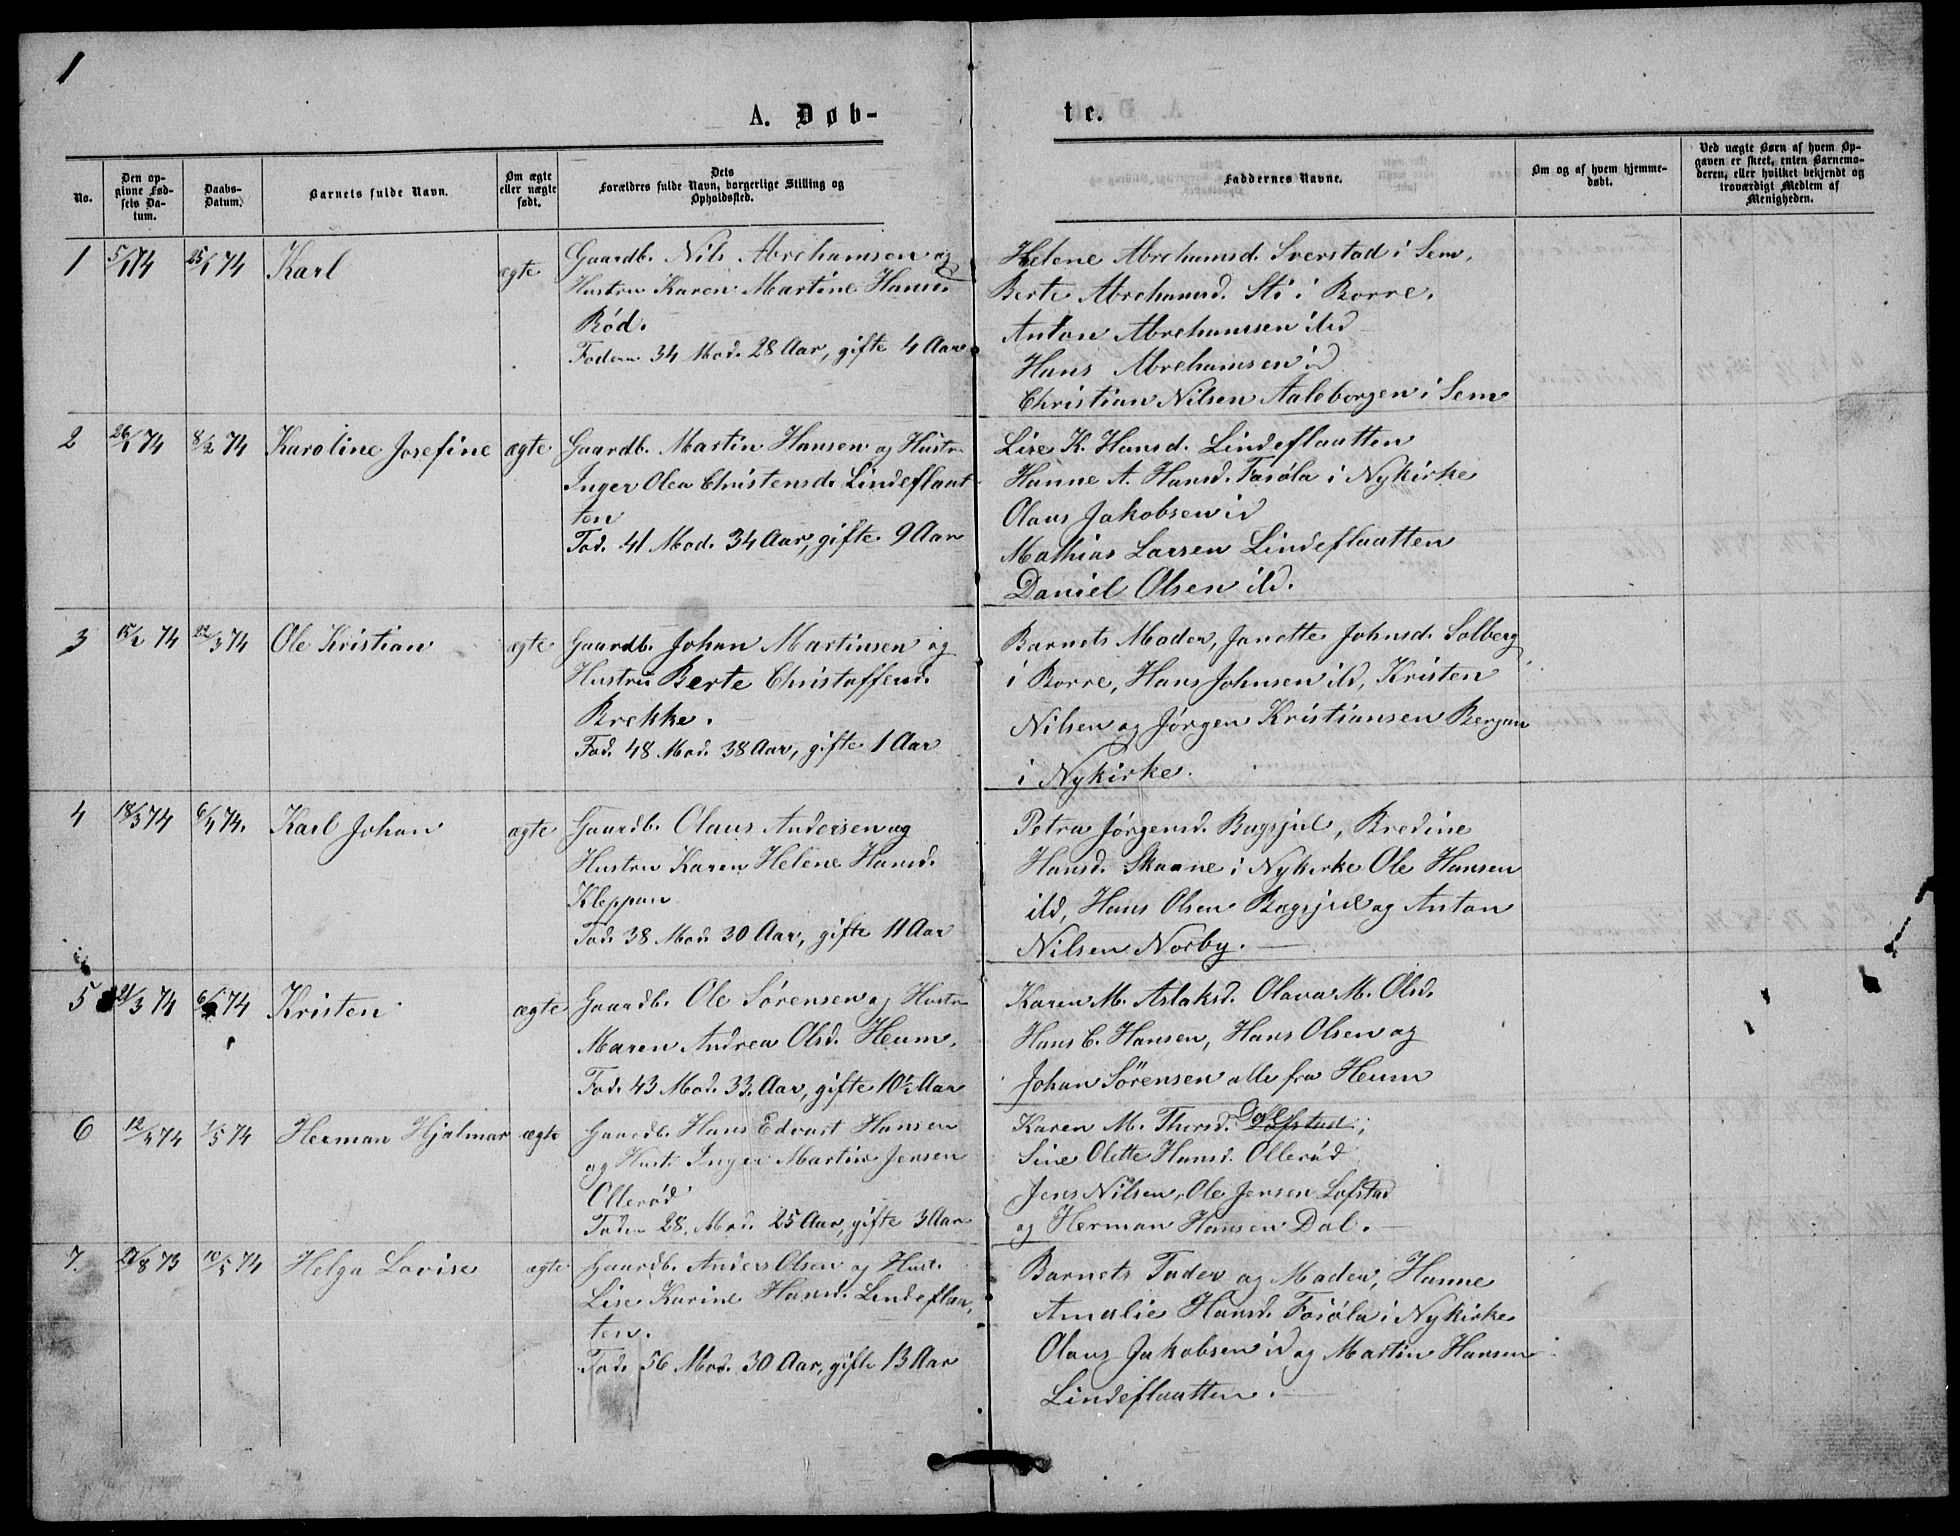 1
A. Døb-
te.
No.
Den op-
givne Fød-
sels Da-
tum.
Daabs-
Datum.
Barnets fulde Navn.
Om ægte
eller uægte
født.
Dets
Forældres fulde Navn, borgerlige Stilling og
Opholdssted.
Faddernes Navne.
Om og af hvem hjemme-
døbt.
Ved uægte Børn af hvem Op-
gaven er skeet, enten Barnemo-
deren, eller hvilket bekjendt og
troværdigt Medlem af
Menigheden.
1 5/1 74 25/1 74 Karl ægte
Gaardb. Nils Abrehamsen og
Hustru Karen Martine Hansd.
Rød.
Faderen 34 Mod. 28 Aar, gifte 4 Aar
Helene Abrehamsd. Sverstad i Sem,
Berte Abrehamsd. Sti i Borre.
Anton Abrehamsen ibd
Hans Abrehamsen id
Christian Nilsen Aaleborgen i Sem
2 26/1 74 8/2 74 Karoline Josefine ægte
Gaardb. Martin Hansen og Hustr.
Inger Olea Christensd. Lindeflaat-
ten
Fad. 41 Mod. 34 Aar, gifte 9 Aar
Lise K. Hansd. Lindeflaatten
Hanne A. Hansd. Fosøla i Nykirke
Olaus Jakobsen id
Mathias Larsen Lindeflaatten
Daniel Olsen ibd.
3 15/2 74 22/3 74 Ole Kristian ægte
Gaardb. Johan Martinsen og
Hustru Berte Christoffersd.
Brekke.
Fad. 48 Mod. 38 Aar, gifte 1 Aar
Barnets Moder, Janette Johnsd. Solberg
i Borre, Hans Johnsen ibd, Kristen
Nilsen og Jørgen Kristiansen Bergan
i Nykirke.
4 18/3 74 6/4 74. Karl Johan ægte
Gaardb. Olaus Andersen og
Hustru Karen Helene Hansd.
Kleppan
Fad. 38 Mod. 30 Aar, gifte 11 Aar
Petra Jørgensd. Bugsjul, Bredine
Hansd. Skaane i Nykirke Ole Hansen
ibd, Hans Olsen Bugsjul og Anton
Nilsen Norby.
5 21/3 74 6/4 74 Kristen ægte
Gaardb. Ole Sørensen og Hustr
Maren Andrea Olsd. Heum,
Fad. 43 Mod. 33 Aar, gifte 10½ Aar
Karen M. Aslaksd. Olava M. Olsd.
Hans C. Hansen, Hans Olsen og
Johan Sörensen alle fra Heum
6 12/4 74 1/5 74 Herman Hjalmar ægte
Gaardb. Hans Edvart Hansen
og Hust. Inger Martin Jensen
Ollerød
Faderen 28, Mod. 25 Aar, gifte 3 Aar
Karen M. Thorsd. Dal
Sine Olette Hansd. Ollerød
Jens Nilsen, Ole Jensen Lofstad
og Herman Hansen Dal.
7. 27/8 73 10/5 74 Helga Lovise ægte
Gaardb. Anders Olsen og Hust.
Lise Karine Hansd. Lindeflaa-
ten.
Fad. 56 Mod. 30 Aar, gifte 13 Aar
Barnets Fader og Moder, Hanne
Amalie Hansd. Fosøla i Nykirke
Olaus Jakobsen id og Martin Hansen
Lindeflaatten.